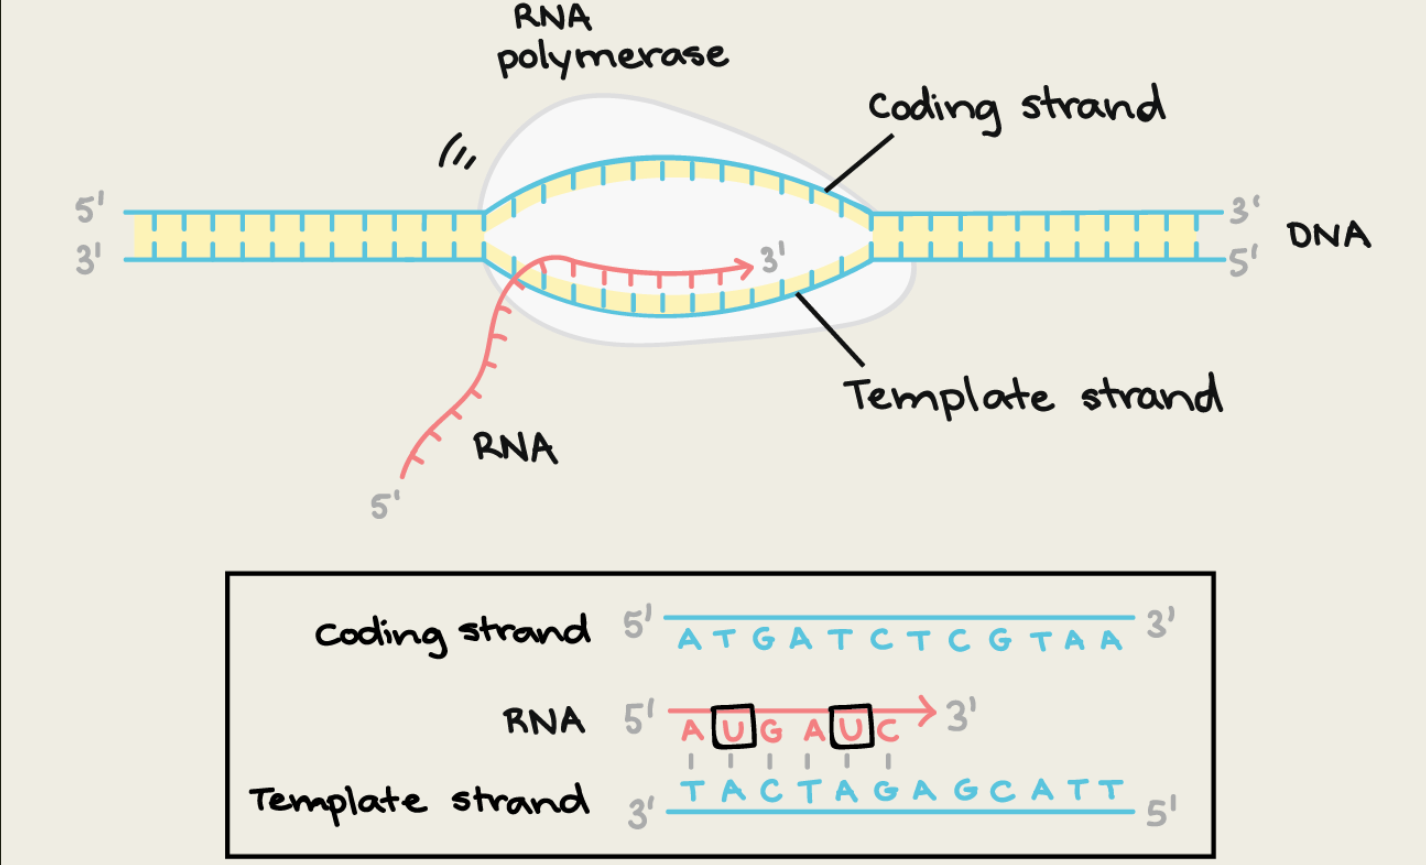 RNA
polymerase
Coding strand
5' 3'
3' 5'
DNA
3'
Template strand
RNA
5'
Coding strand 5' ATGATCTCGTAA 3'
RNA 5' AUGAUC 3'
Template strand 3' TACTAGAGCATT 5'